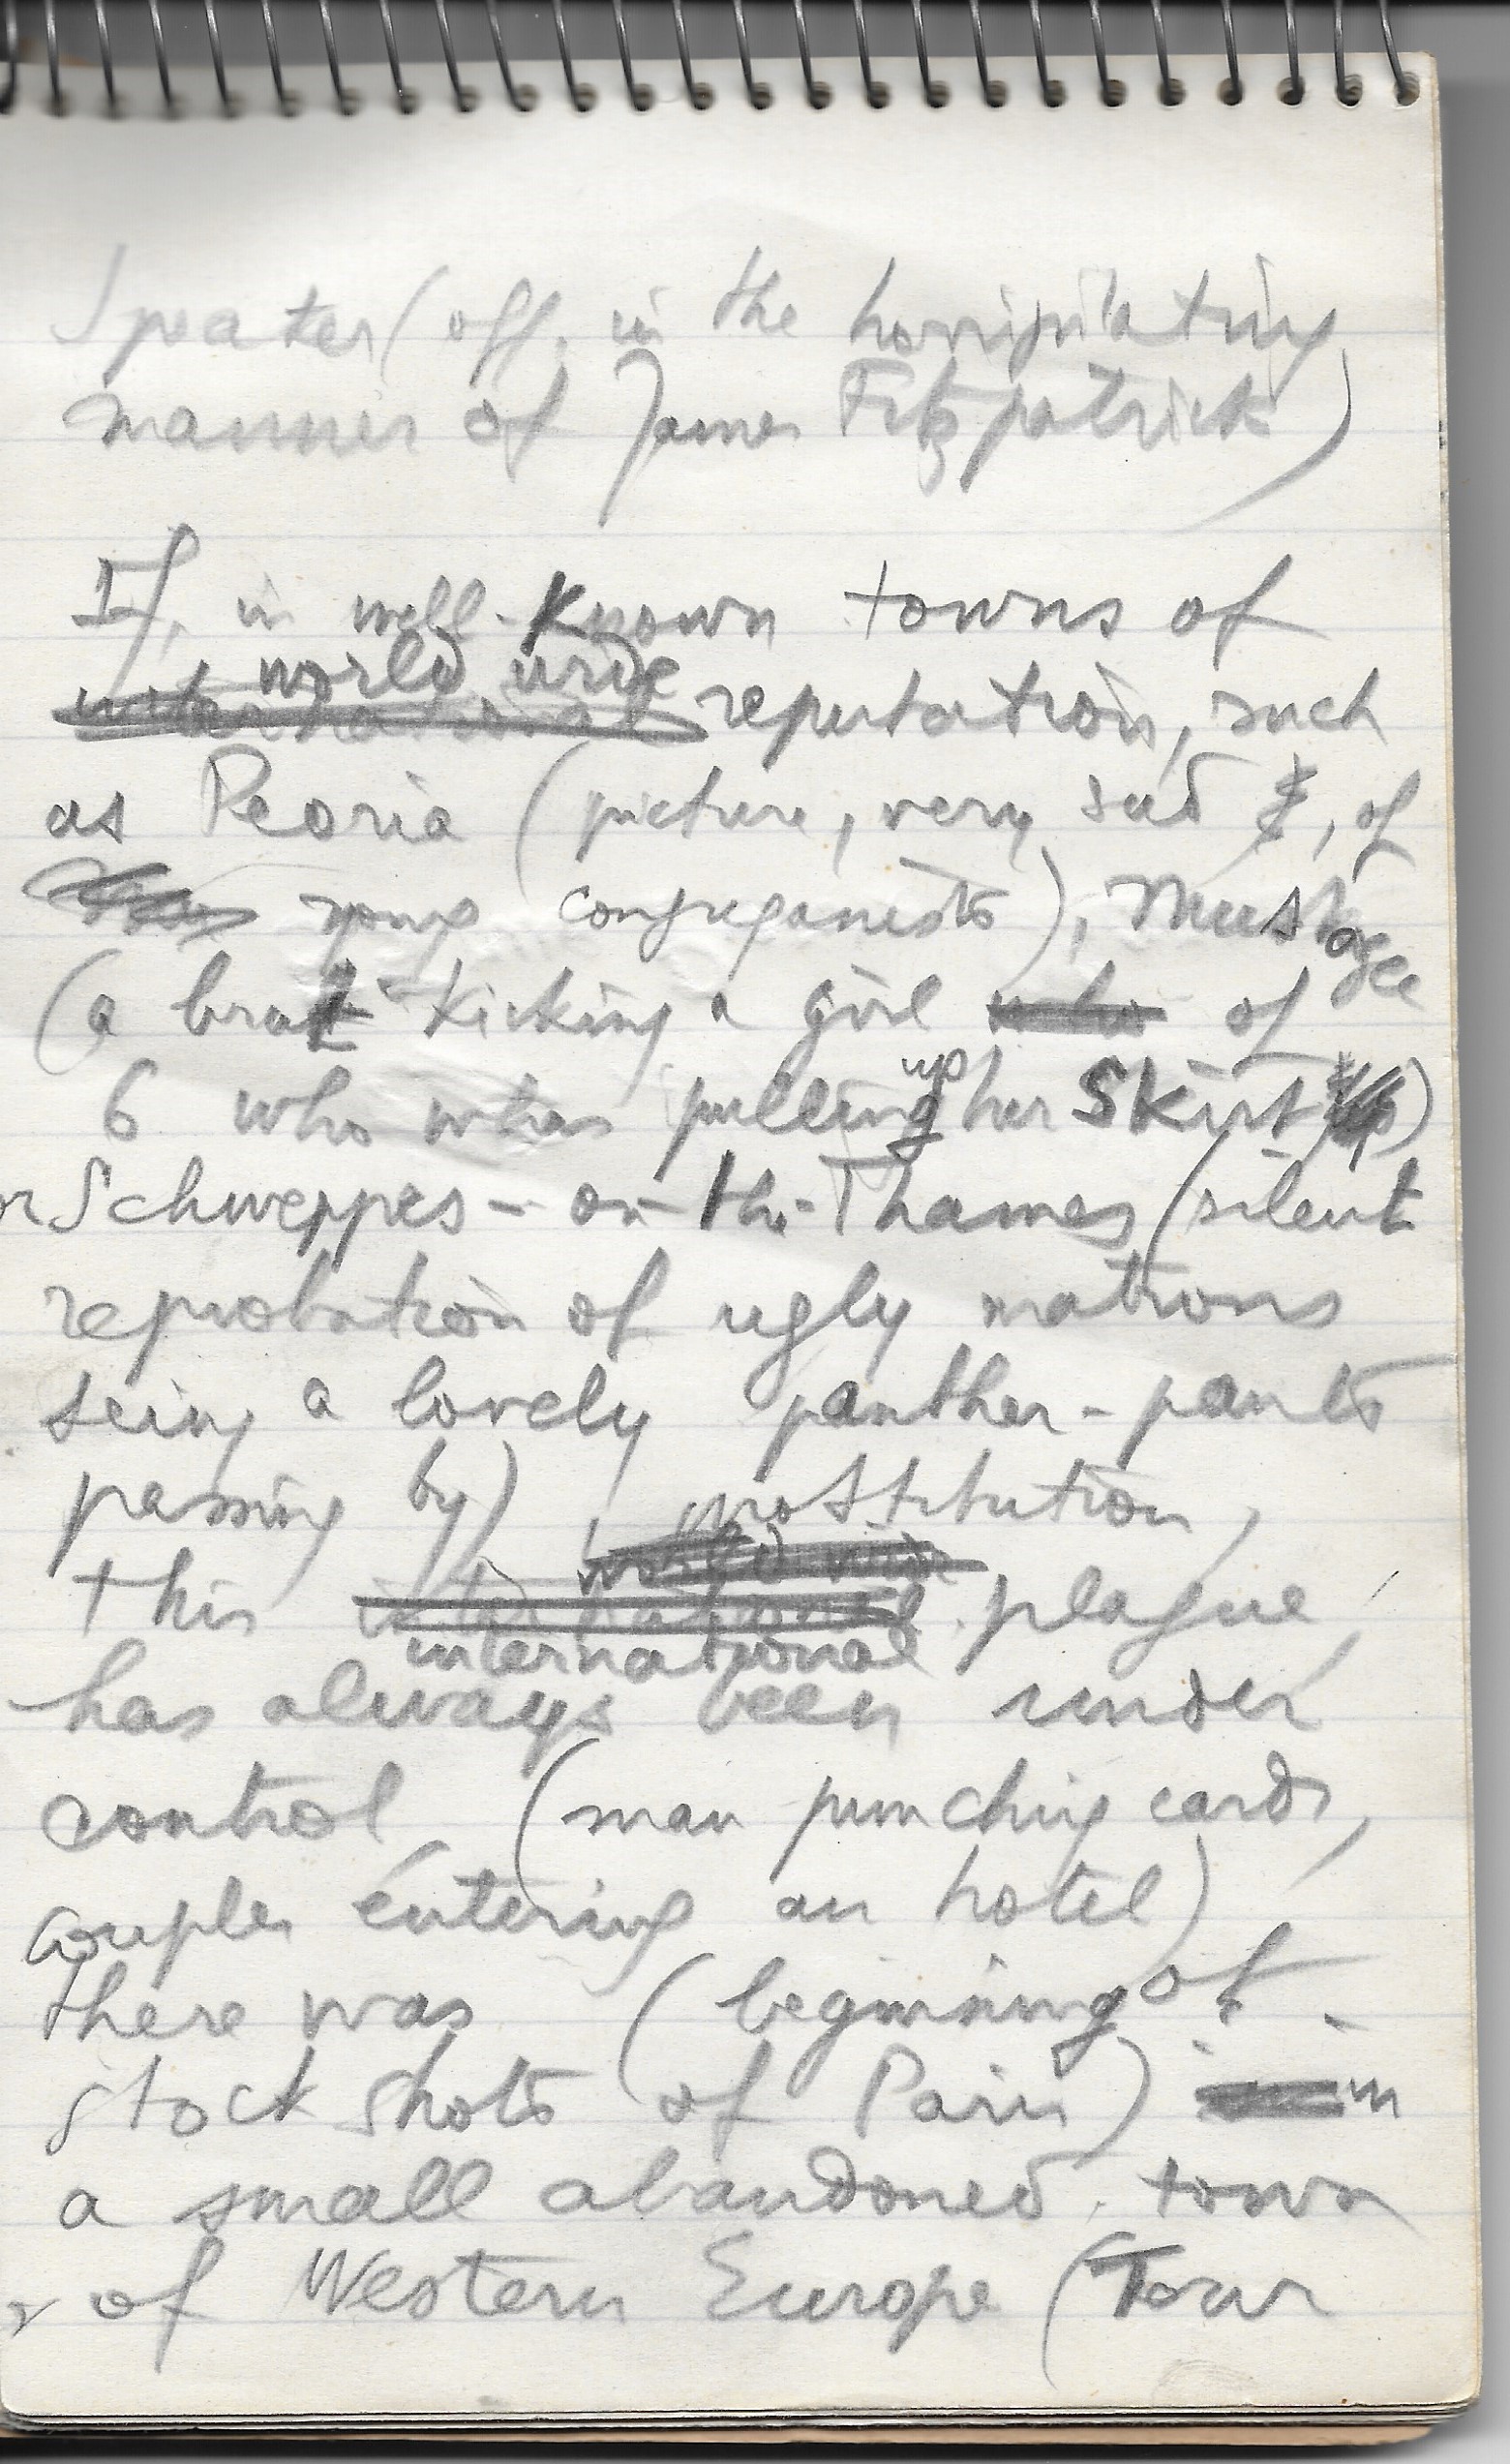 Speaker (off, in the horripilating
manner of James Fitzpatrick)
If, in well-Known towns of
world wide
international reputation, such
as Peoria (picture, very sad, of
young ), Muskogee
(a brat kicking a girl who of
6 who was pulling up her skirt up)
or Schweppes-on-the-Thames (silent
reprobation of ugly matrons
seing a lovely panther-pants
passing by), prostitution,
world wide
this international plague,
international
has always been under
control (man punching cards,
couples entering an hotel)
there was (beginning of
stock shots of Paris) in
a small abandoned town
of Western Europe (Tour